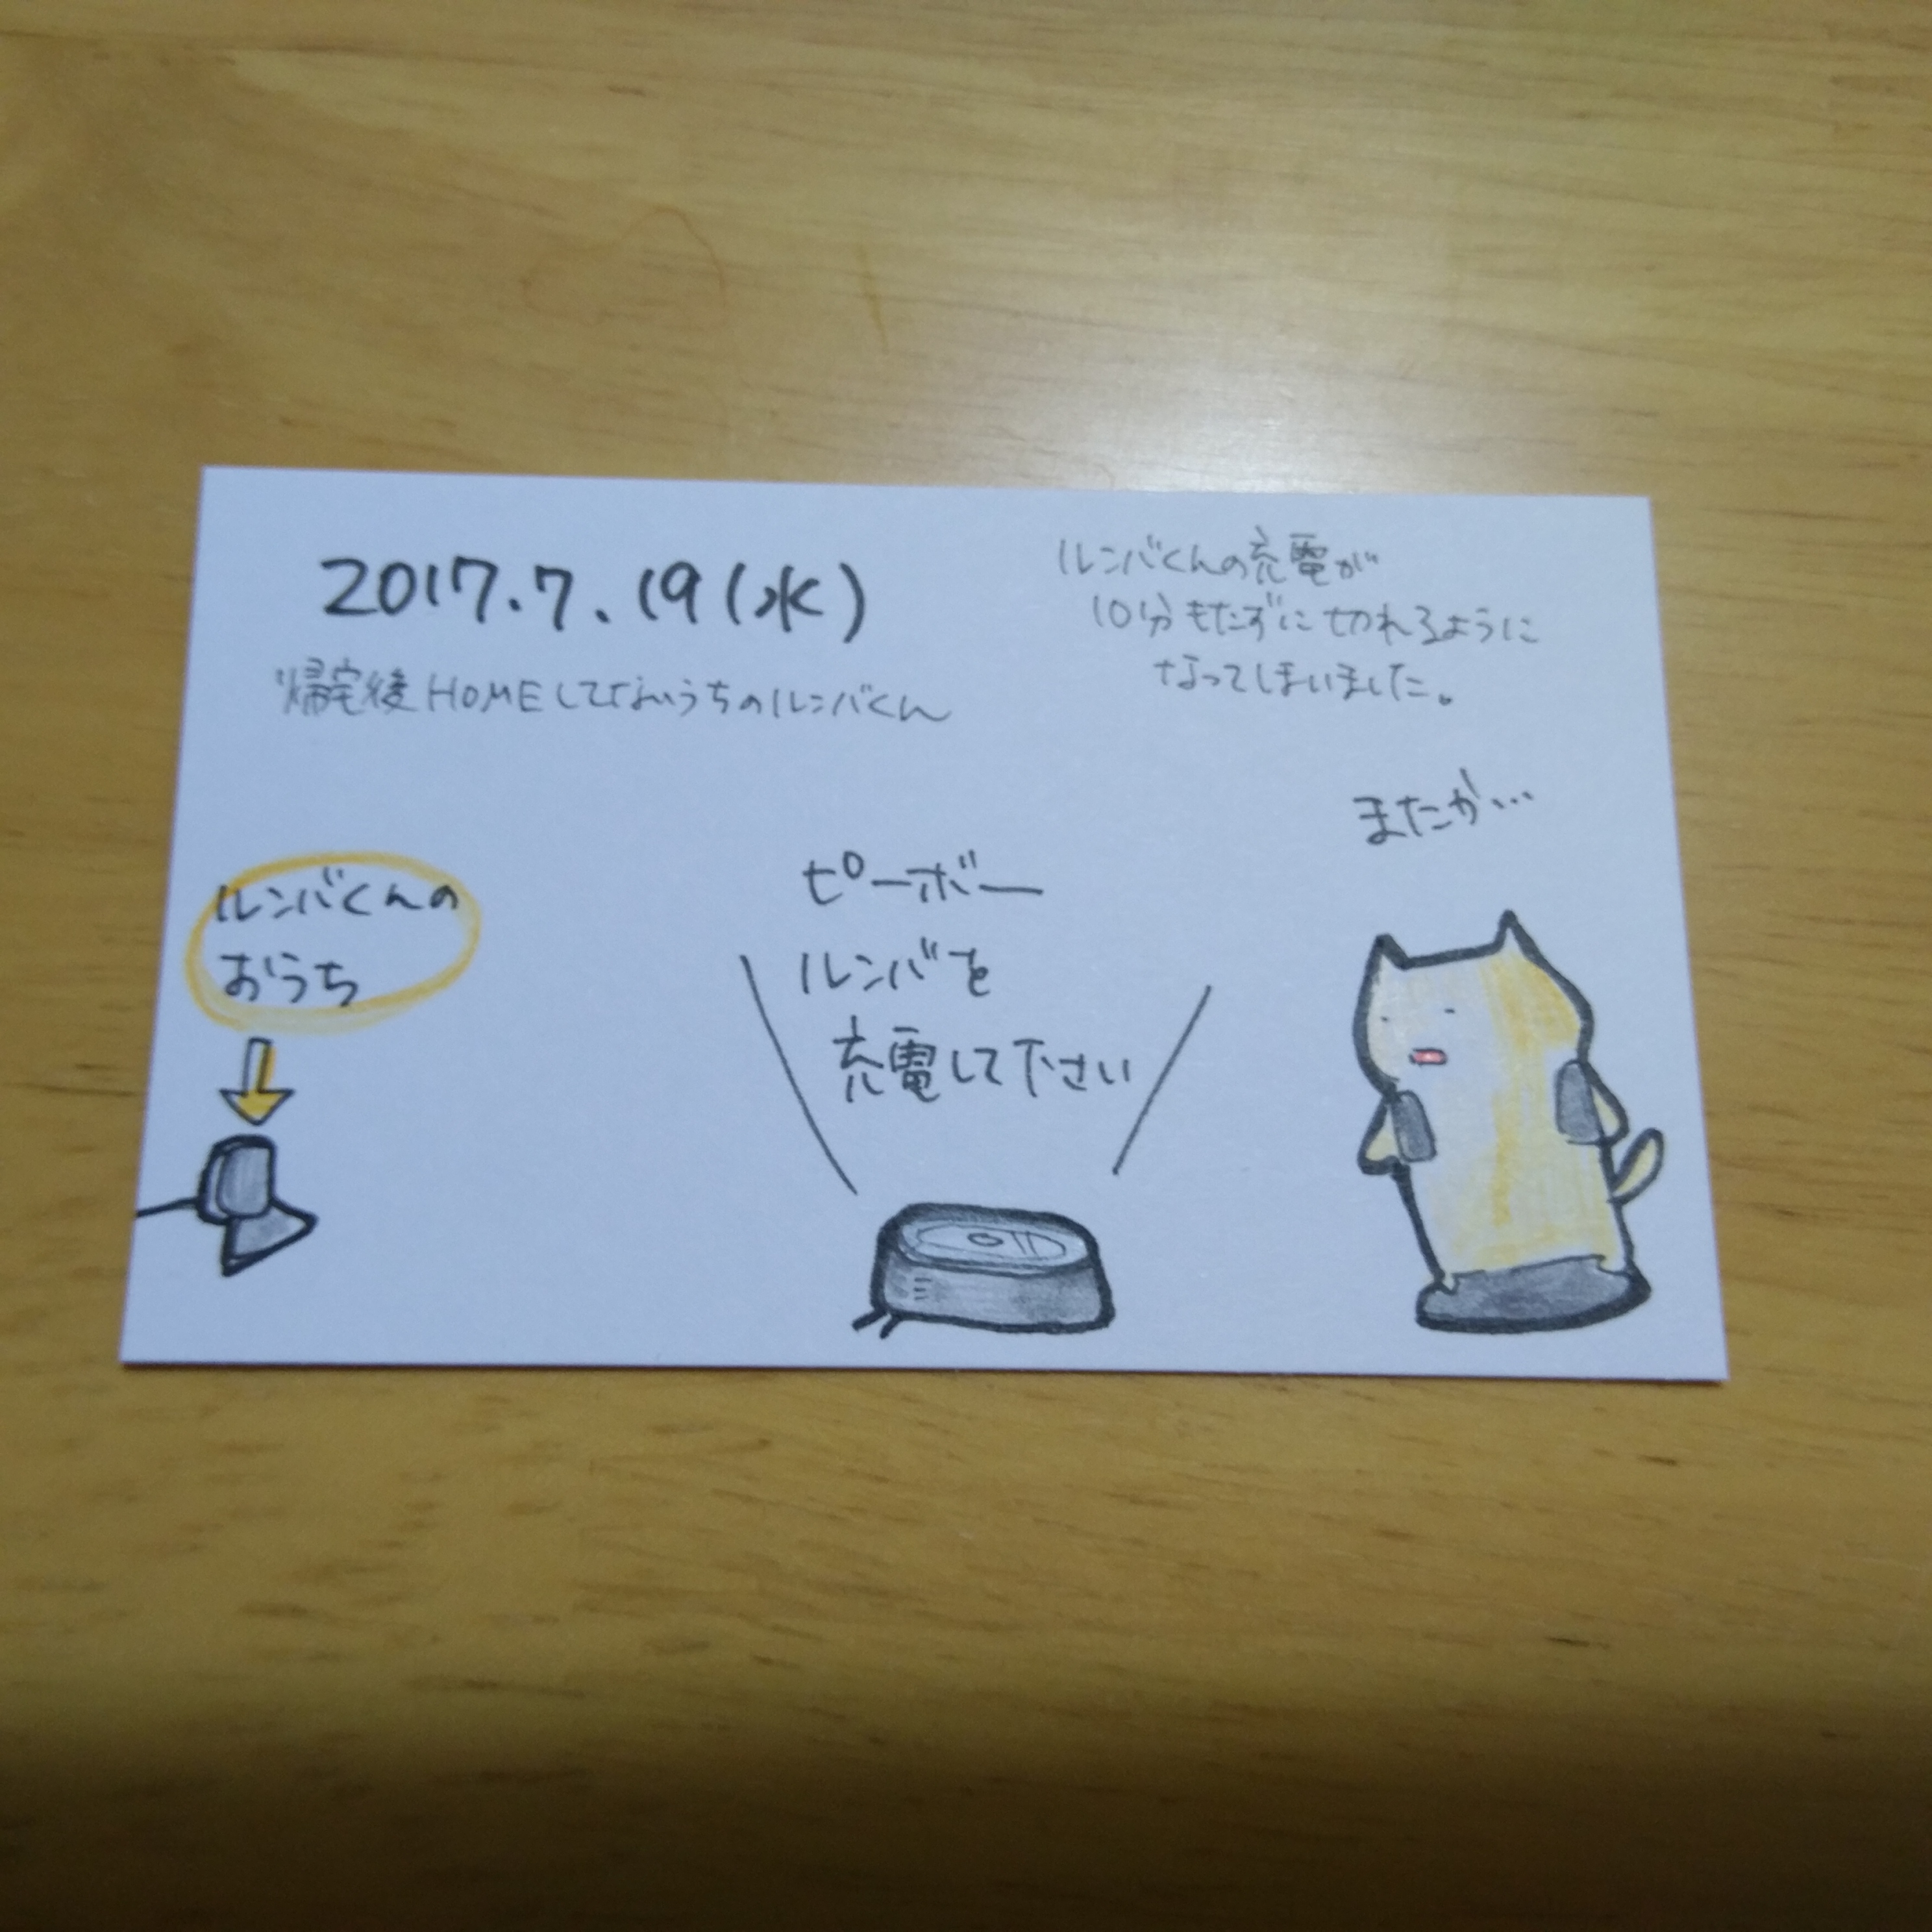 2017.7.19(水)
帰宅後HOMEしてないうちのルンバくん
ルンバくんの充電が
10分もたずに切れるように
なってしまいました。
またか…
ルンバくんの
おうち
ピーボー
ルンバを
充電して下さい